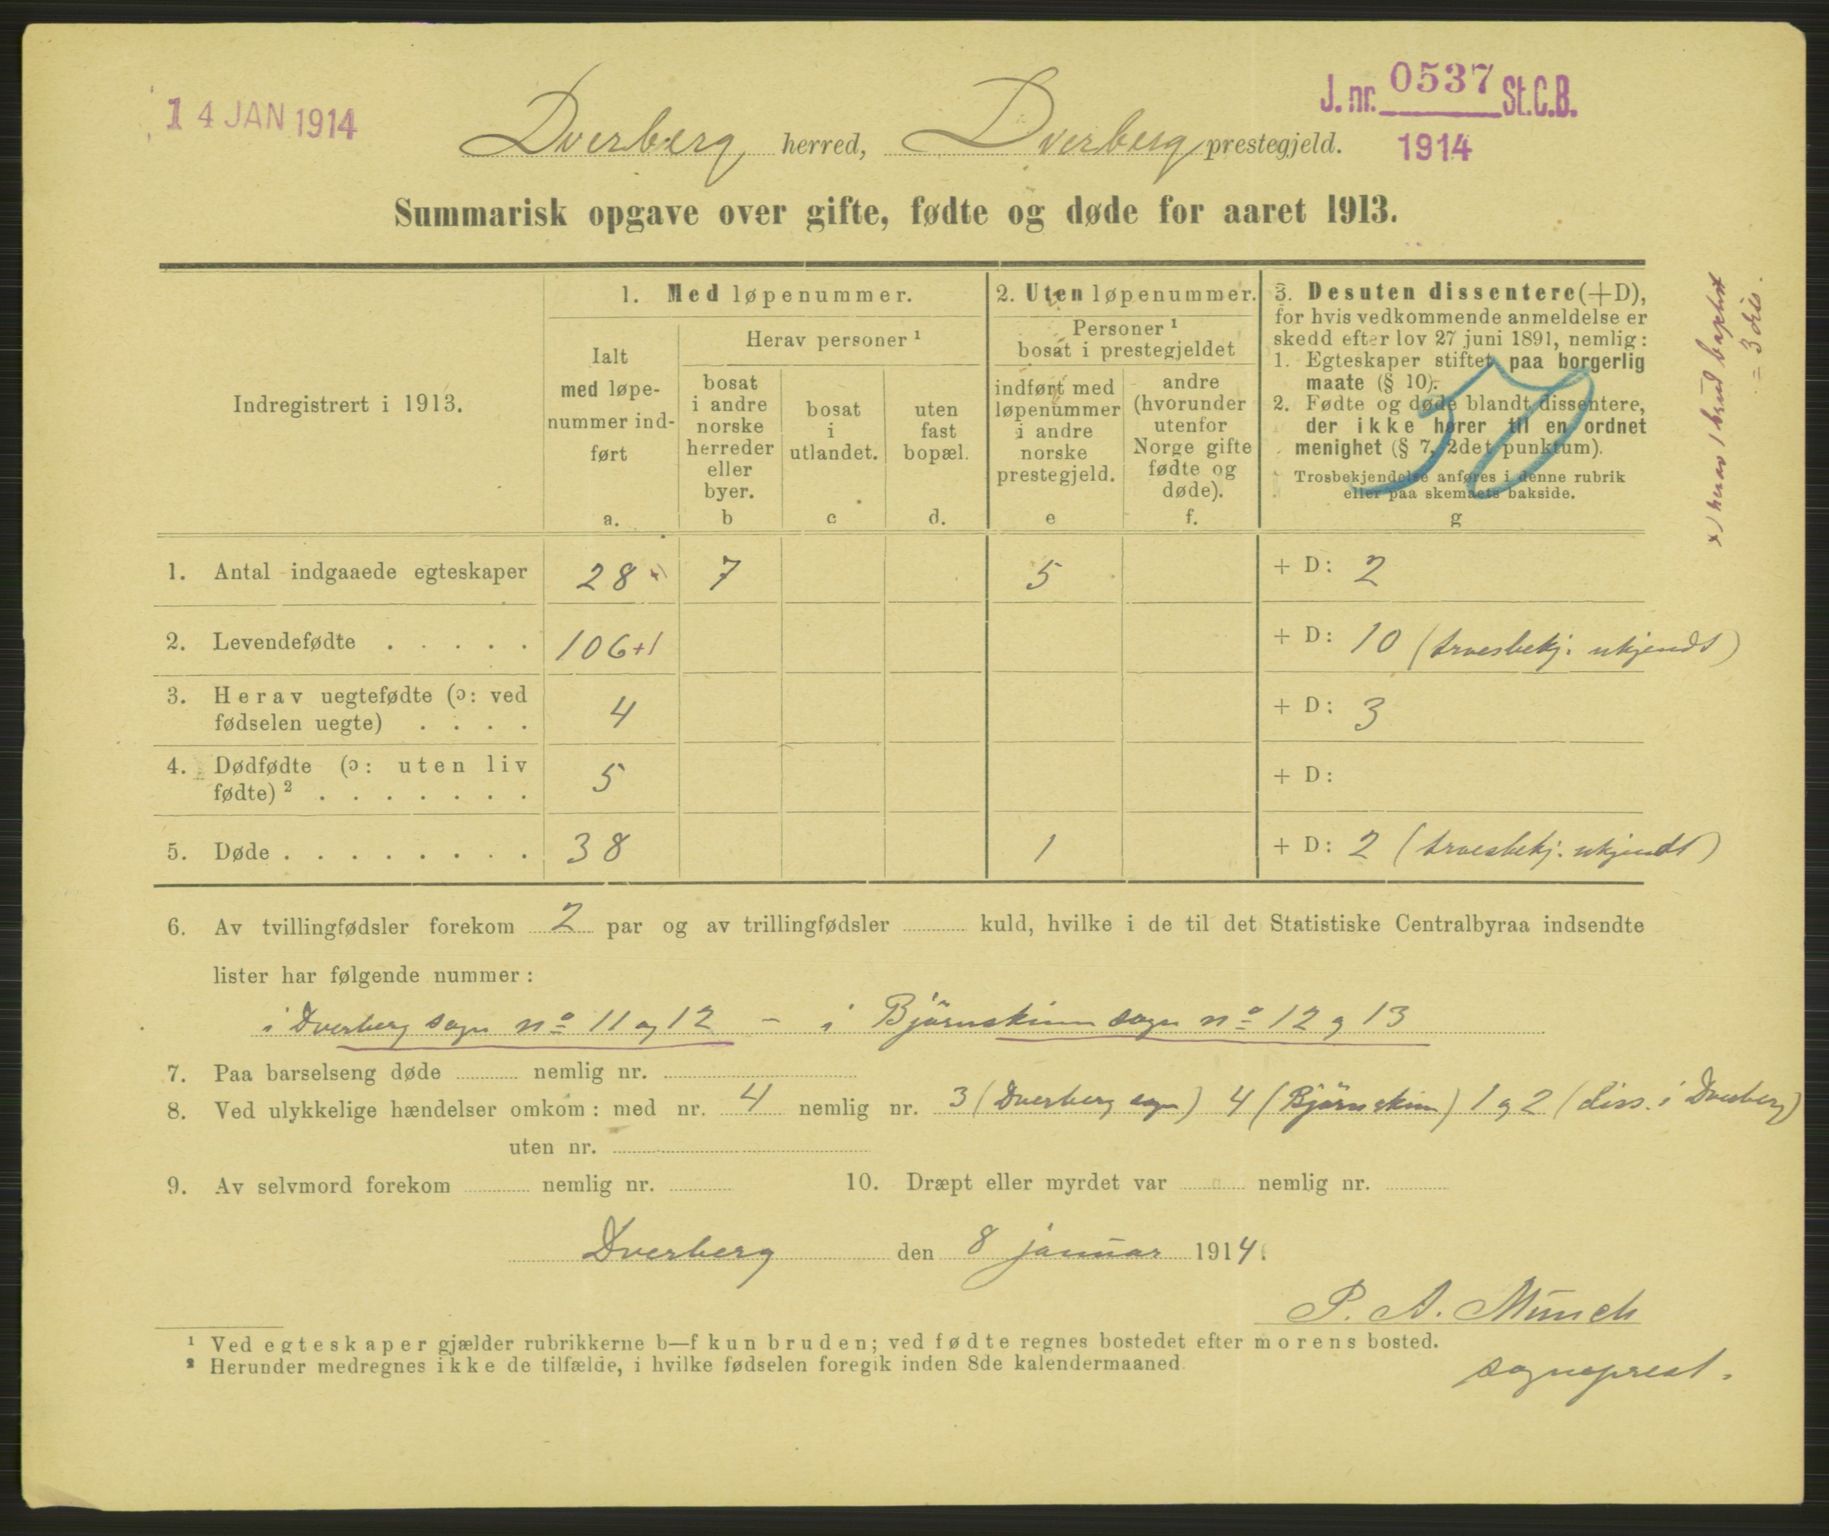 14 JAN 1914
J. nr. 0537 St.C.B.
1914
Dverberg herred, Dverberg prestegjeld.
Summarisk opgave over gifte, fødte og døde for aaret 1913.
Indregistrert i 1913.
1. Med løpenummer.
Ialt
med løpe-
nummer ind-
ført
a.
Herav personer ¹
bosat
i andre
norske
herreder
eller
byer.
b
bosat
i
utlandet.
c
uten
fast
bopæl.
d.
2. Uten løpenummer.
Personer ¹
bosat i prestegjeldet
indført med
løpenummer
i andre
norske
prestegjeld.
e
andre
(hvorunder
utenfor
Norge gifte
fødte og
døde).
f.
3. Desuten dissentere (+D),
for hvis vedkommende anmeldelse er
skedd efter lov 27 juni 1891, nemlig:
1. Egteskaper stiftet paa borgerlig
maate (§ 10).
2. Fødte og døde blandt dissentere,
der ikke hører til en ordnet
menighet (§ 7, 2det punktum).
Trosbekjendelse anføres i denne rubrik
eller paa skemaets bakside.
g
x) herav 1 brud baptist
= 3 dis.
1. Antal indgaaede egteskaper 28 x) 7 5 + D: 2
2. Levendefødte . . . . . 106+1 + D: 10 (troesbekj. ukjendt)
3. Herav uegtefødte (ɔ: ved
fødselen uegte) . . . . 4 + D: 3
4. Dødfødte (ɔ: uten liv
fødte) ² . . . . . . . 5 + D:
5. Døde . . . . . . . . . 38 1 + D: 2 (troesbekj. ukjendt)
6. Av tvillingfødsler forekom 2 par og av trillingfødsler kuld, hvilke i de til det Statistiske Centralbyraa indsendte
lister har følgende nummer:
i Dverberg sogn nº 11 og 12 – i Bjørnskinn sogn nº 12 og 13
7. Paa barselseng døde nemlig nr.
8. Ved ulykkelige hændelser omkom: med nr. 4 nemlig nr. 3 (Dverberg sogn) 4 (Bjørnskinn) 1 og 2 (diss. i Dverberg)
uten nr.
9. Av selvmord forekom nemlig nr. 10. Dræpt eller myrdet var nemlig nr.
Dverberg den 8 januar 1914.
P. A. Munch
sogneprest.
¹ Ved egteskaper gjælder rubrikkerne b—f kun bruden; ved fødte regnes bostedet efter morens bosted.
² Herunder medregnes ikke de tilfælde, i hvilke fødselen foregik inden 8de kalendermaaned.